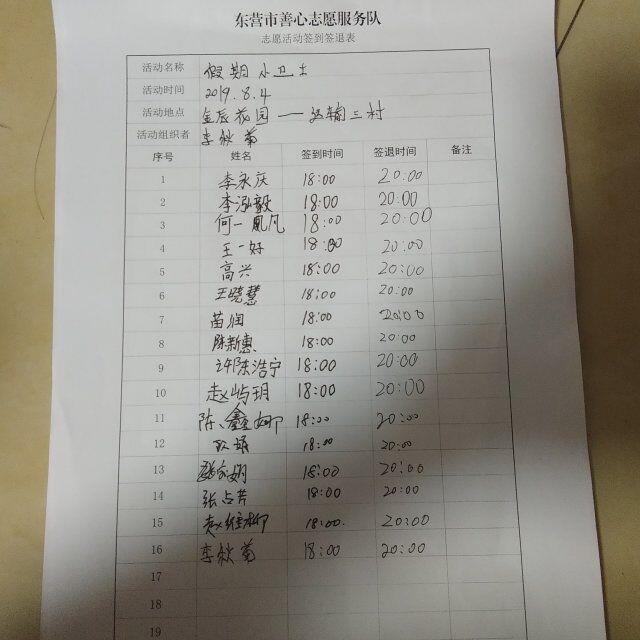 东营市善心志愿服务队
志愿活动签到签退表
活动名称 假期小卫士
活动时间 2019.8.4
活动地点 金辰花园——运输三村
活动组织者 李秋菊
序号 姓名 签到时间 签退时间 备注
1 李永庆 18:00 20:00
2 李泓毅 18:00 20:00
3 何一凤凡 18:00 20:00
4 王一好 18:00 20:00
5 高兴 18:00 20:00
6 王晓慧 18:00 20:00
7 苗润 18:00 20:00
8 陈新惠 18:00 20:00
9 许陈浩宁 18:00 20:00
10 赵屿玥 18:00 20:00
11 陈鑫 18:00 20:00
12 18:00 20:00
13 18:00 20:00
14 张占芹 18:00 20:00
15 18:00. 20:00
16 李秋菊 18:00 20:00
17
18
19